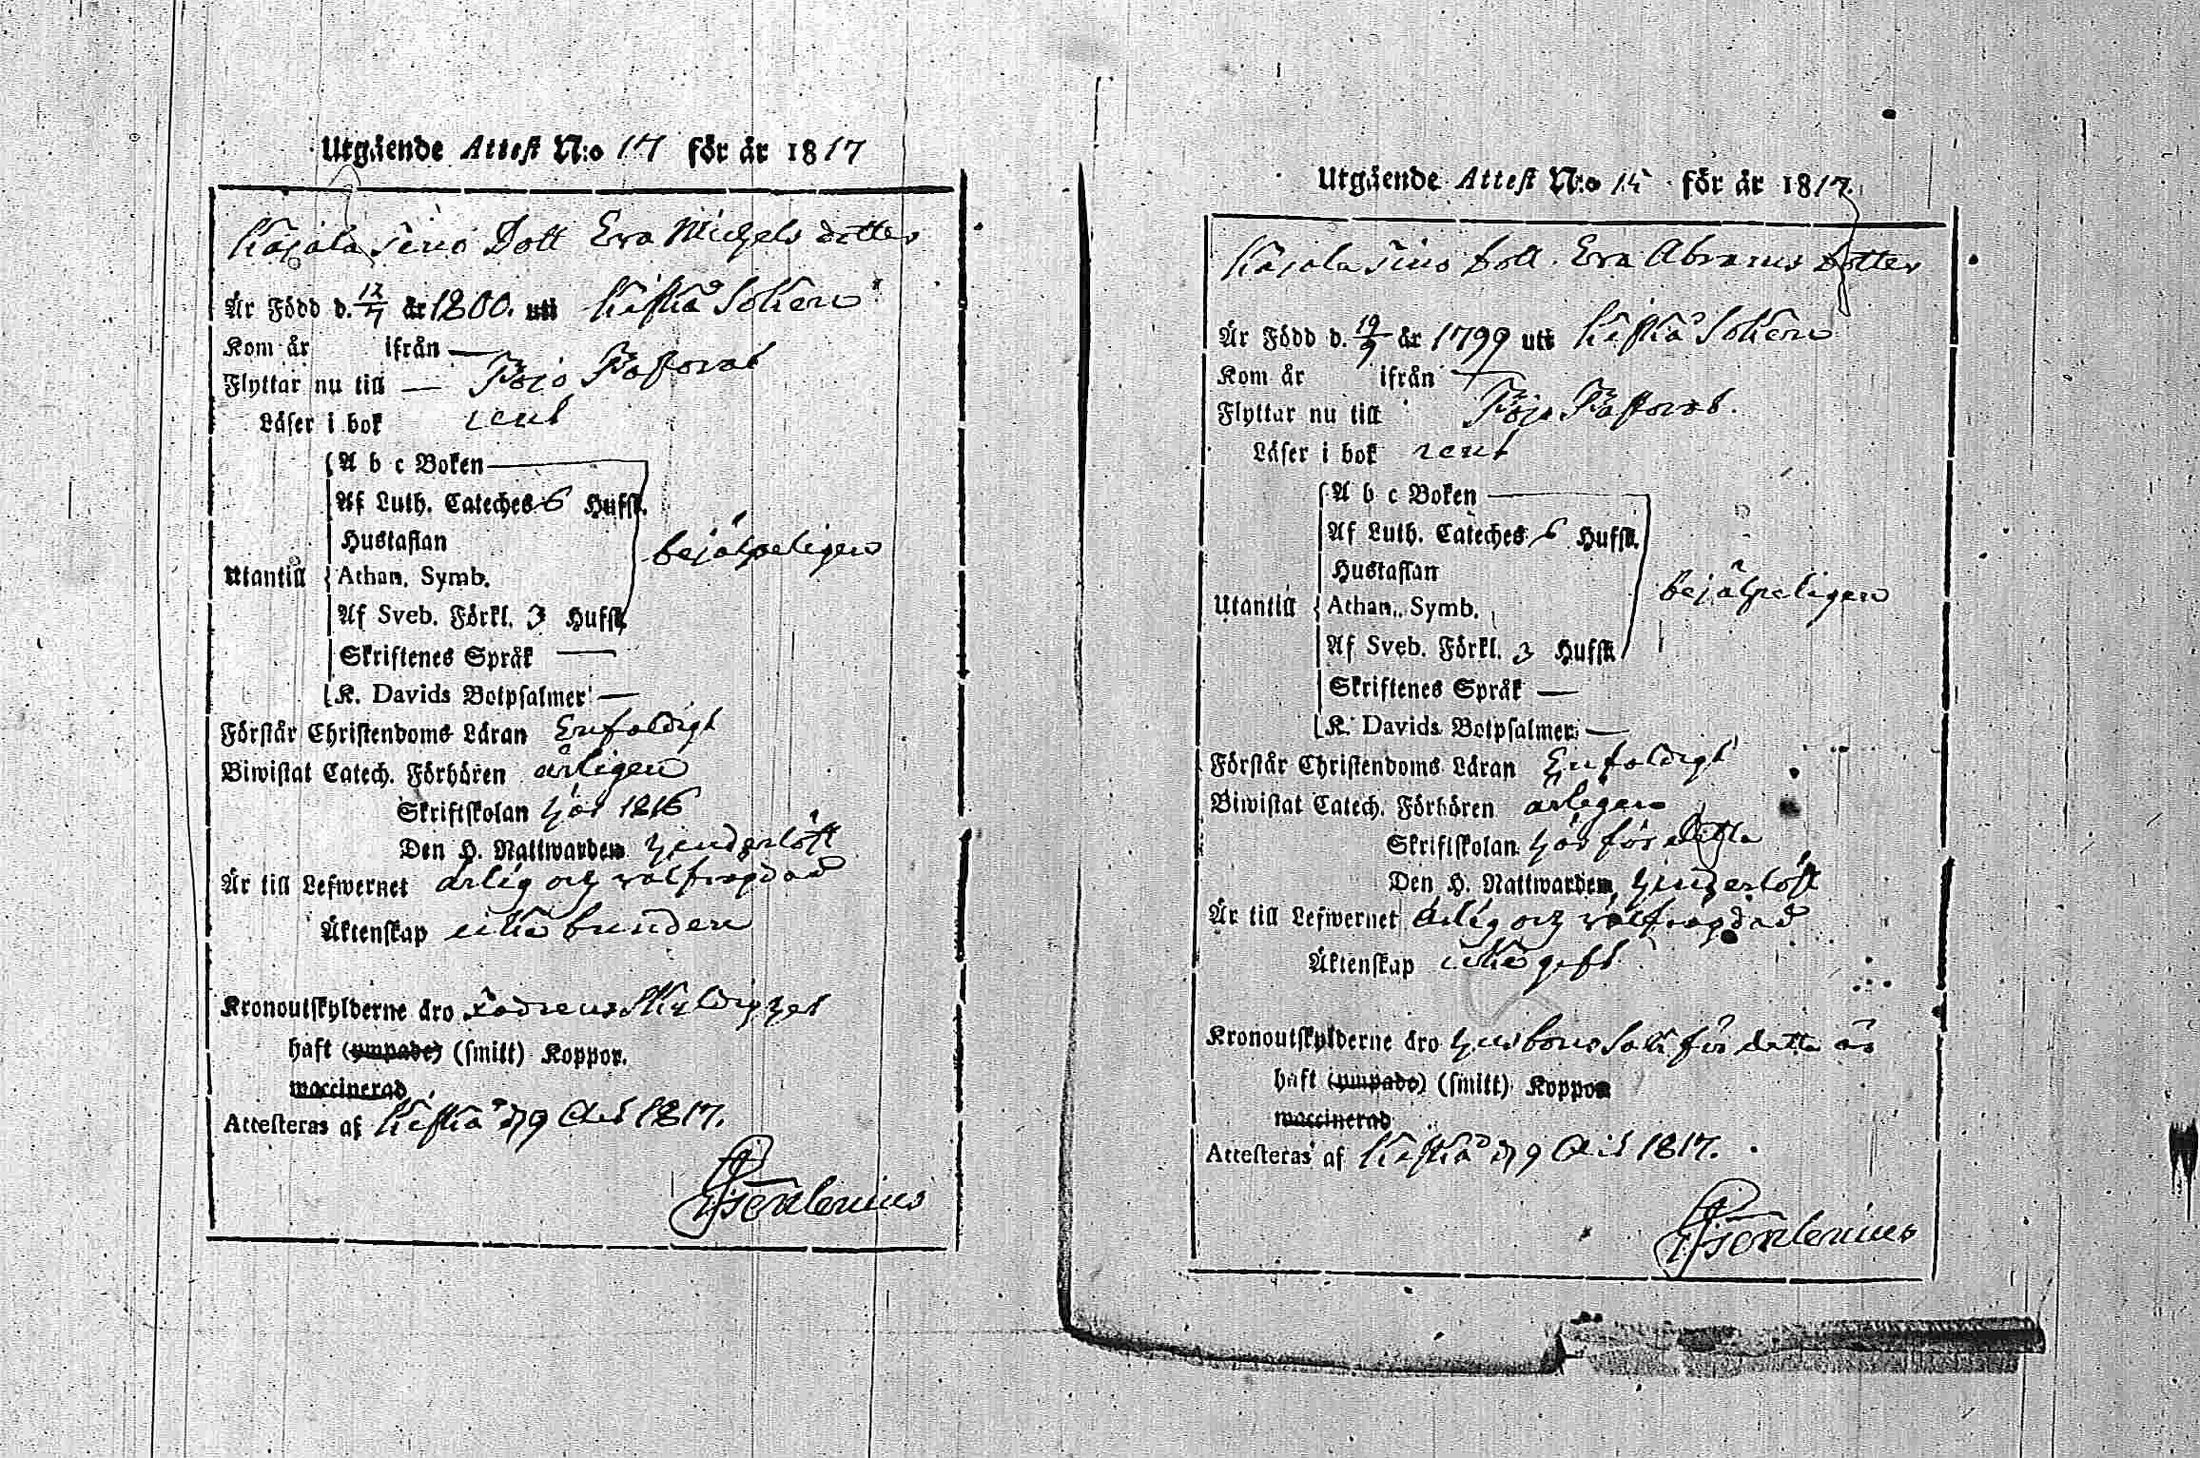 Utgående Attest N:o 14 för år 1817
Kajala Eva Michels dotter
Är Född d. 12/7 år 1800. uti Kiskå Sokern
Kom år ifrån —
Flyttar nu till — Pojo Pastorat
Läser i bok rent
Utantill
A b c Boken —
Af Luth. Cateches 6 Hufst.
Hustaflan
Athan. Symb.
Af Sveb. Förkl. 3 Hufst.
Skriftenes Språk —
K. Davids Botpsalmer —
bejälpeligen
Förstår Christendoms Läran Enfaldigt
Biwistat Catech. Förhören årligen
Skriftskolan här 1816
Den H. Nattwarden hinderlöst
Är till Lefwernet ärlig och välfrägdad
Äktenskap icke bunden
Kronoutskylderne äro
haft (ympade) (smitt) Koppor.
waccinerad
Attesteras af Kiskå d 9 1817.
Utgående Attest N:o 15 för år 1817.
Kajala Eva Abrams dotter
Är Född d. 19/9 år 1799 uti Kiskå Sokern
Kom år ifrån —
Flyttar nu till Pojo Pastorat.
Läser i bok rent
Utantill
A b c Boken —
Af Luth. Cateches 6 Hufst.
Hustaflan
Athan. Symb.
Af Sveb. Förkl. 3 Hufst.
Skriftenes Språk —
K. Davids Botpsalmer —
bejälpeligen
Förstår Christendoms Läran Enfaldigt
Biwistat Catech. Förhören årligen
Skriftskolan här för detta
Den H. Nattwarden hinderlöst
Är till Lefwernet ärlig och välfrägdad
Äktenskap icke gift
Kronoutskylderne äro för detta år
haft (ympade) (smitt) Koppor
waccinerad
Attesteras af Kiskå d 9 1817.